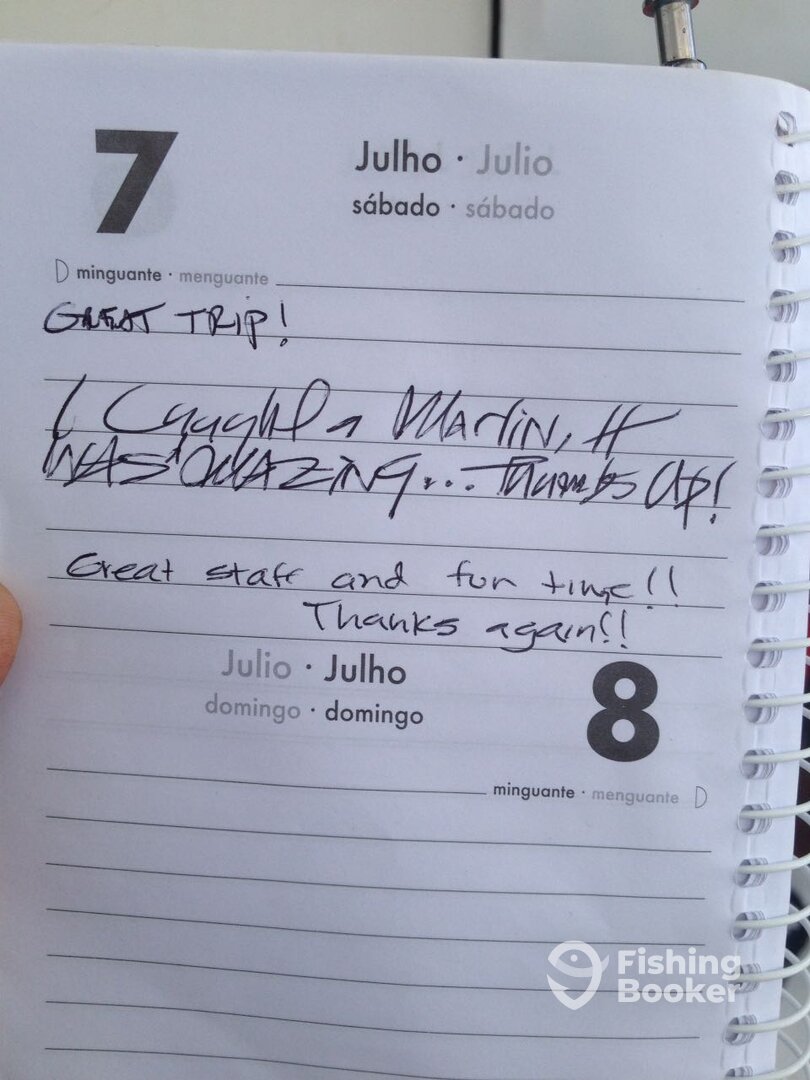 7
Julho · Julio
sábado · sábado
minguante · menguante
GREAT TRIP!
I Caught a Marlin, It
WAS AMAZING... Thumbs Up!
Great staff and fun time!!
Thanks again!!
Julio · Julho
domingo · domingo
8
minguante · menguante
Fishing
Booker